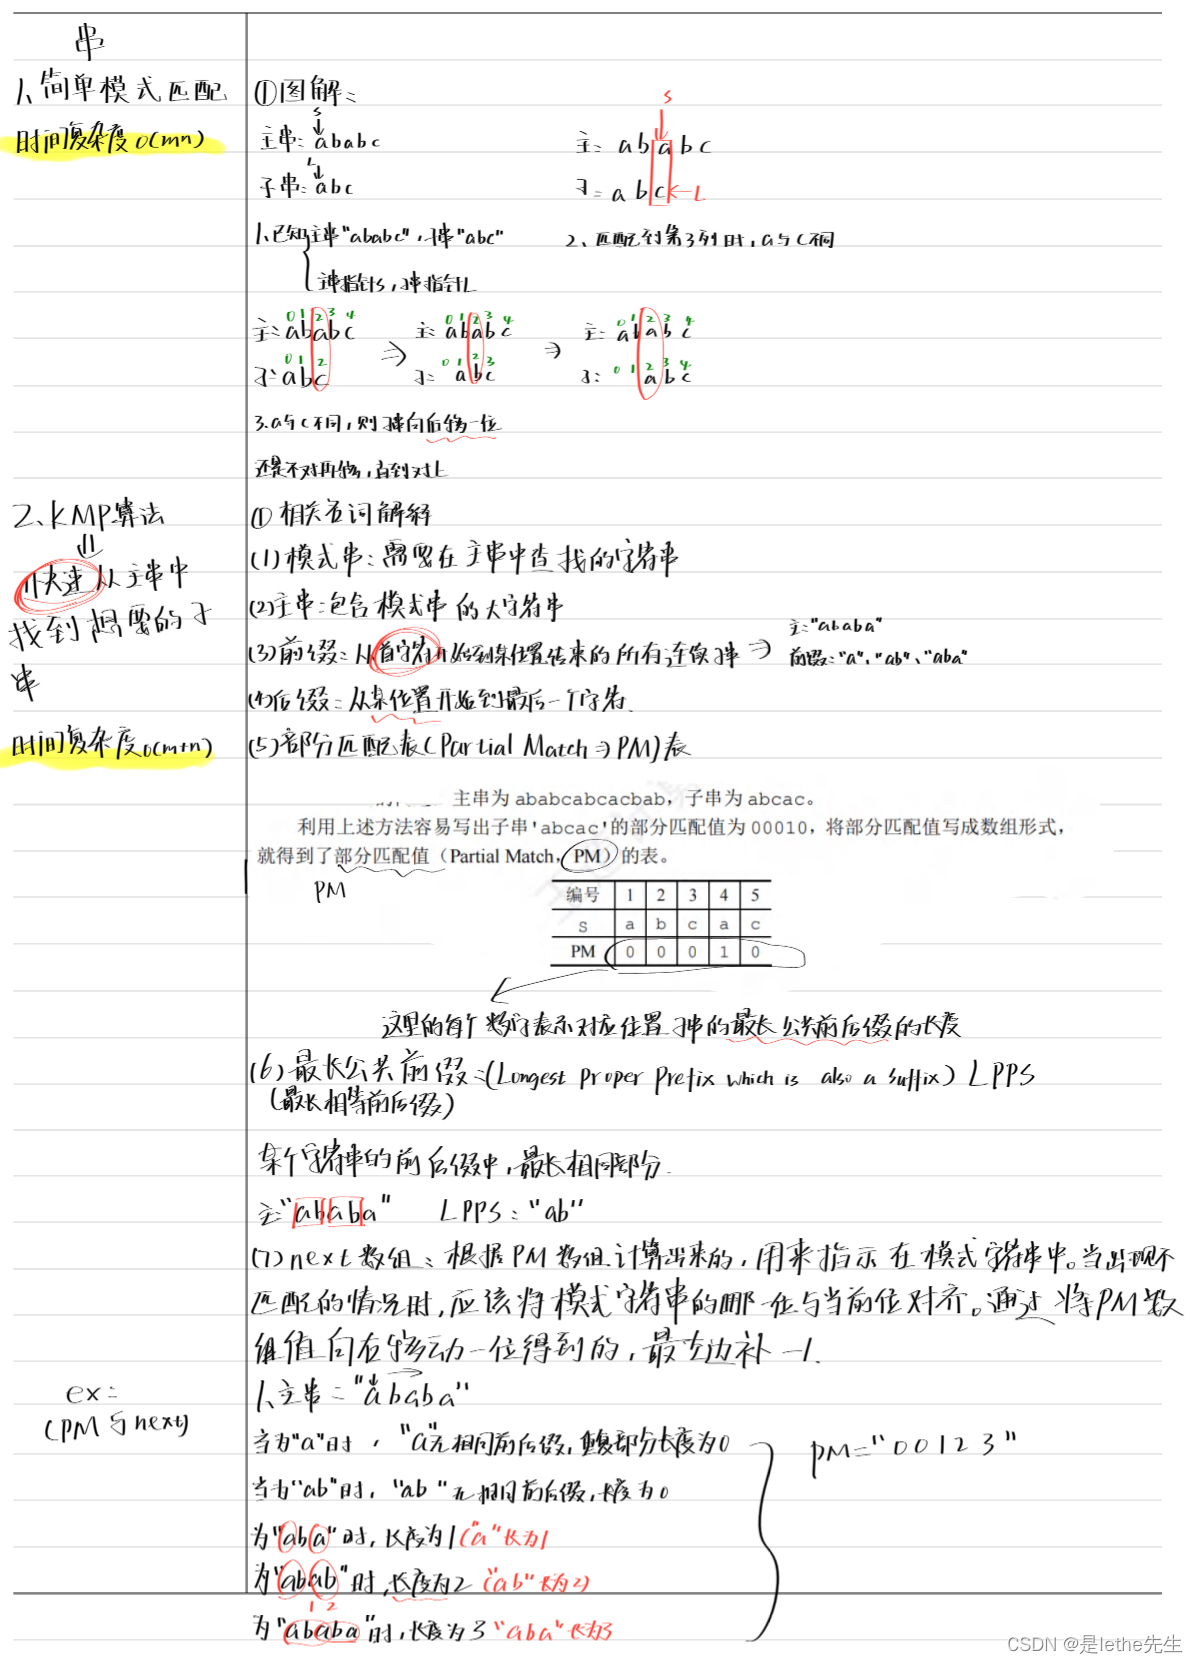 串
1、简单模式匹配
时间复杂度 O(mn)
①图解：
S
主串：ababc
L
子串：abc
S
主：ababc
子：abc←L
1、已知主串"ababc"，子串"abc"
主串指针S，子串指针L
2、匹配到第3列时，a与c不同
0 1 2 3 4
主：ababc
0 1 2
子：abc
⇒
0 1 2 3 4
主：ababc
0 1 2 3
子：abc
⇒
0 1 2 3 4
主：ababc
0 1 2 3 4
子：abc
3.a与c不同，则子串向后移一位
还是不对再移，直到对上
2、KMP算法
⇓
快速从主串中
找到想要的子
串
时间复杂度O(m+n)
①相关名词解释
(1)模式串：需要在主串中查找的字符串
(2)主串：包含模式串的大字符串
(3)前缀：从首字符开始到某位置结束的所有连续子串 ⇒
主："ababa"
前缀："a"、"ab"、"aba"
(4)后缀：从某位置开始到最后一个字符.
(5)部分匹配表(Partial Match⇒PM)表
主串为 ababcabcacbab，子串为 abcac。
利用上述方法容易写出子串'abcac'的部分匹配值为 00010，将部分匹配值写成数组形式，
就得到了部分匹配值（Partial Match，PM）的表。
PM
编号 1 2 3 4 5
S a b c a c
PM 0 0 0 1 0
这里的每个数字表示对应位置子串的最长公共前后缀的长度
(6)最长公共前缀：(Longest Proper Prefix which is also a suffix) LPPS
(最长相等前后缀)
某个字符串的前后缀中，最长相同部分.
主"ababa" LPPS："ab"
(7)next数组：根据PM数组计算出来的，用来指示在模式字符串中。当出现不
匹配的情况时，应该将模式字符串的哪一位与当前位对齐。通过将PM数
组值向右移动一位得到的，最左边补-1.
ex：
(PM与next)
1、主串："ababa"
当为"a"时，"a"无相同前后缀，重复部分长度为0
当为"ab"时，"ab"无相同前后缀，长度为0
为"aba"时，长度为1("a"长为1
为"abab"时，长度为2("ab"长为2)
1 2
为"ababa"时，长度为3"aba"长为3
PM="00123"
CSDN @是lethe先生